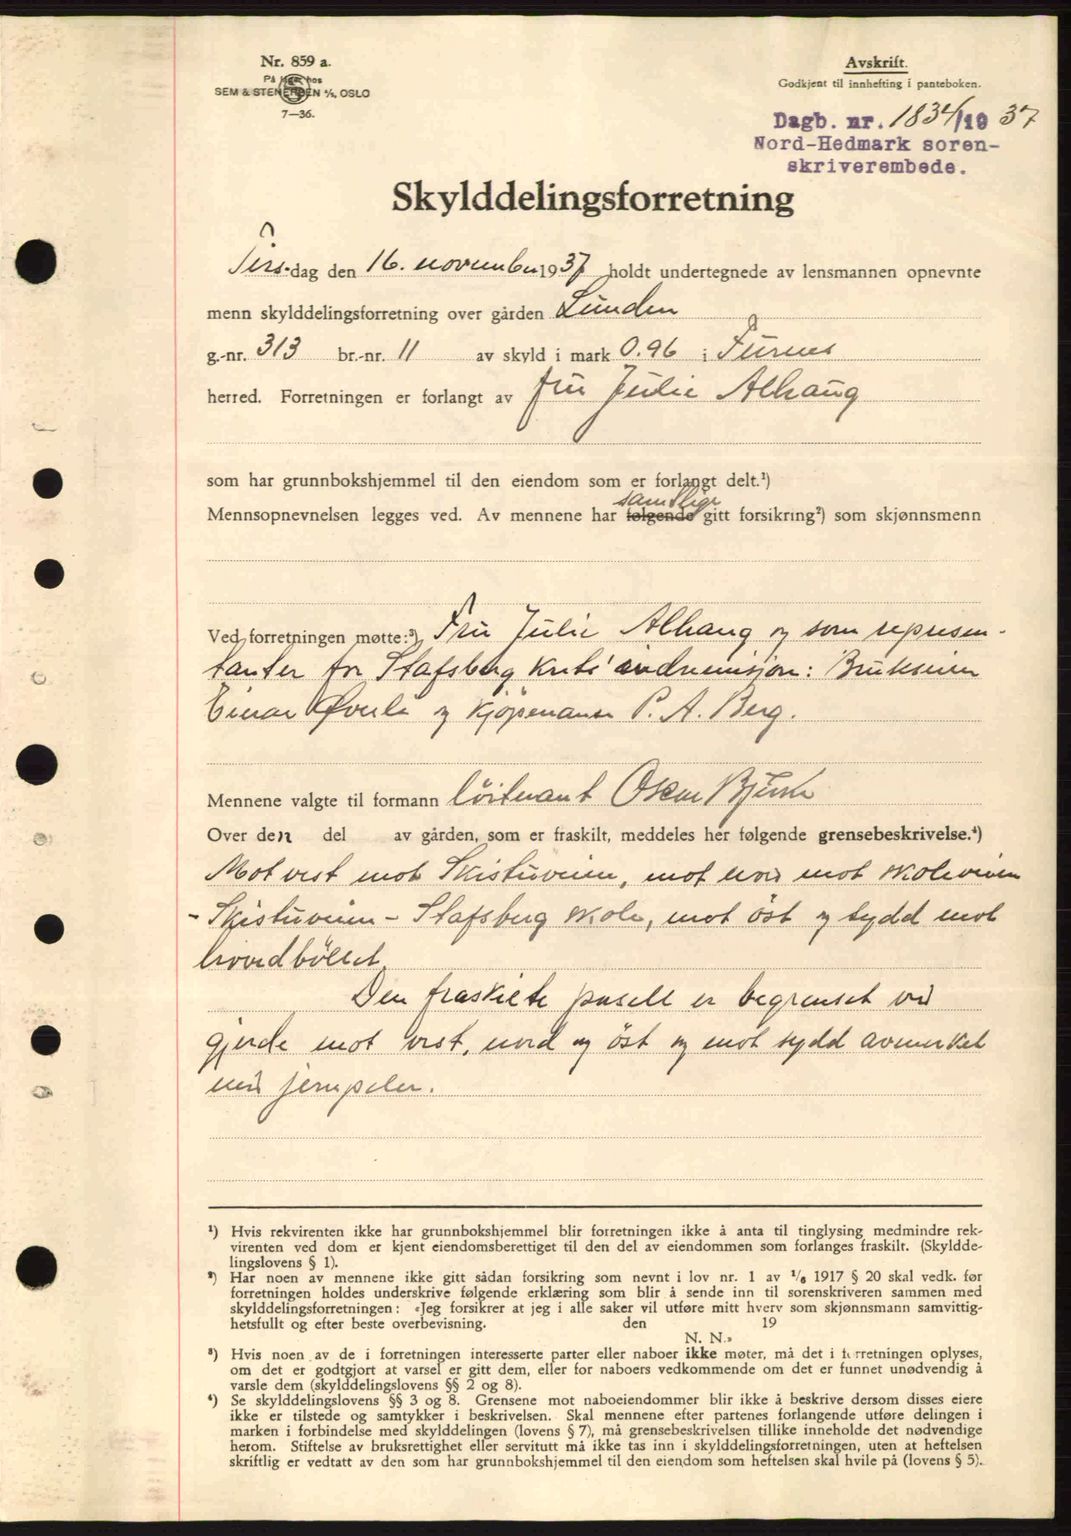 Nr. 859 a.
På lager hos
SEM & STENERSEN A/S, OSLO
7—36.
Avskrift.
Godkjent til innhefting i panteboken.
Dagb. nr. 1834/19 37
Nord-Hedmark soren-
skriverembede.
Skylddelingsforretning
Tirs-dag den 16. november 1937 holdt undertegnede av lensmannen opnevnte
menn skylddelingsforretning over gården Lunden
g.-nr. 313 br.-nr. 11 av skyld i mark 0.96 i Furnes
herred. Forretningen er forlangt av fru Julie Alhaug
som har grunnbokshjemmel til den eiendom som er forlangt delt.¹)
samtlige
Mennsopnevnelsen legges ved. Av mennene har følgende gitt forsikring²) som skjønnsmenn
Ved forretningen møtte:³) Fru Julie Alhaug og som represen-
tanter for Stafsberg krets' indremisjon: Brukseier
Einar Øverli og kjøpmann P. A. Berg.
Mennene valgte til formann löitnant Oskar Bjerke
Over den del av gården, som er fraskilt, meddeles her følgende grensebeskrivelse.⁴)
Mot vest mot Skistuveien, mot nord mot skoleveien
- Skistuveien - Stafsberg skole, mot öst og sydd mot
hovedbölet.
Den fraskilte parsell er begrenset ved
gjerde mot vest, nord og öst og mot sydd avmerket
med jernpeler.
¹) Hvis rekvirenten ikke har grunnbokshjemmel blir forretningen ikke å anta til tinglysing medmindre rek-
virenten ved dom er kjent eiendomsberettiget til den del av eiendommen som forlanges fraskilt. (Skyldde-
lingslovens § 1).
²) Har noen av mennene ikke gitt sådan forsikring som nevnt i lov nr. 1 av 1/6 1917 § 20 skal vedk. før
forretningen holdes underskrive følgende erklæring som blir å sende inn til sorenskriveren sammen med
skylddelingsforretningen: «Jeg forsikrer at jeg i alle saker vil utføre mitt hverv som skjønnsmann samvittig-
hetsfullt og efter beste overbevisning. den 19
N. N.»
³) Hvis noen av de i forretningen interesserte parter eller naboer ikke møter, må det i forretningen oplyses,
om det er godtgjort at varsel er gitt dem, eller for naboers vedkommende om det er funnet unødvendig å
varsle dem (skylddelingslovens §§ 2 og 8).
⁴) Se skylddelingslovens §§ 3 og 8. Grensene mot naboeiendommer blir ikke å beskrive dersom disses eiere
ikke er tilstede og samtykker i beskrivelsen. Skal mennene efter partenes forlangende utføre delingen i
marken i forbindelse med skylddelingen (lovens § 7), må grensebeskrivelsen tillike inneholde det nødvendige
herom. Stiftelse av bruksrettighet eller servitutt må ikke tas inn i skylddelingsforretningen, uten at heftelsen
skriftlig er vedtatt av den som har grunnbokshjemmel til den eiendom som heftelsen skal hvile på (lovens § 5).